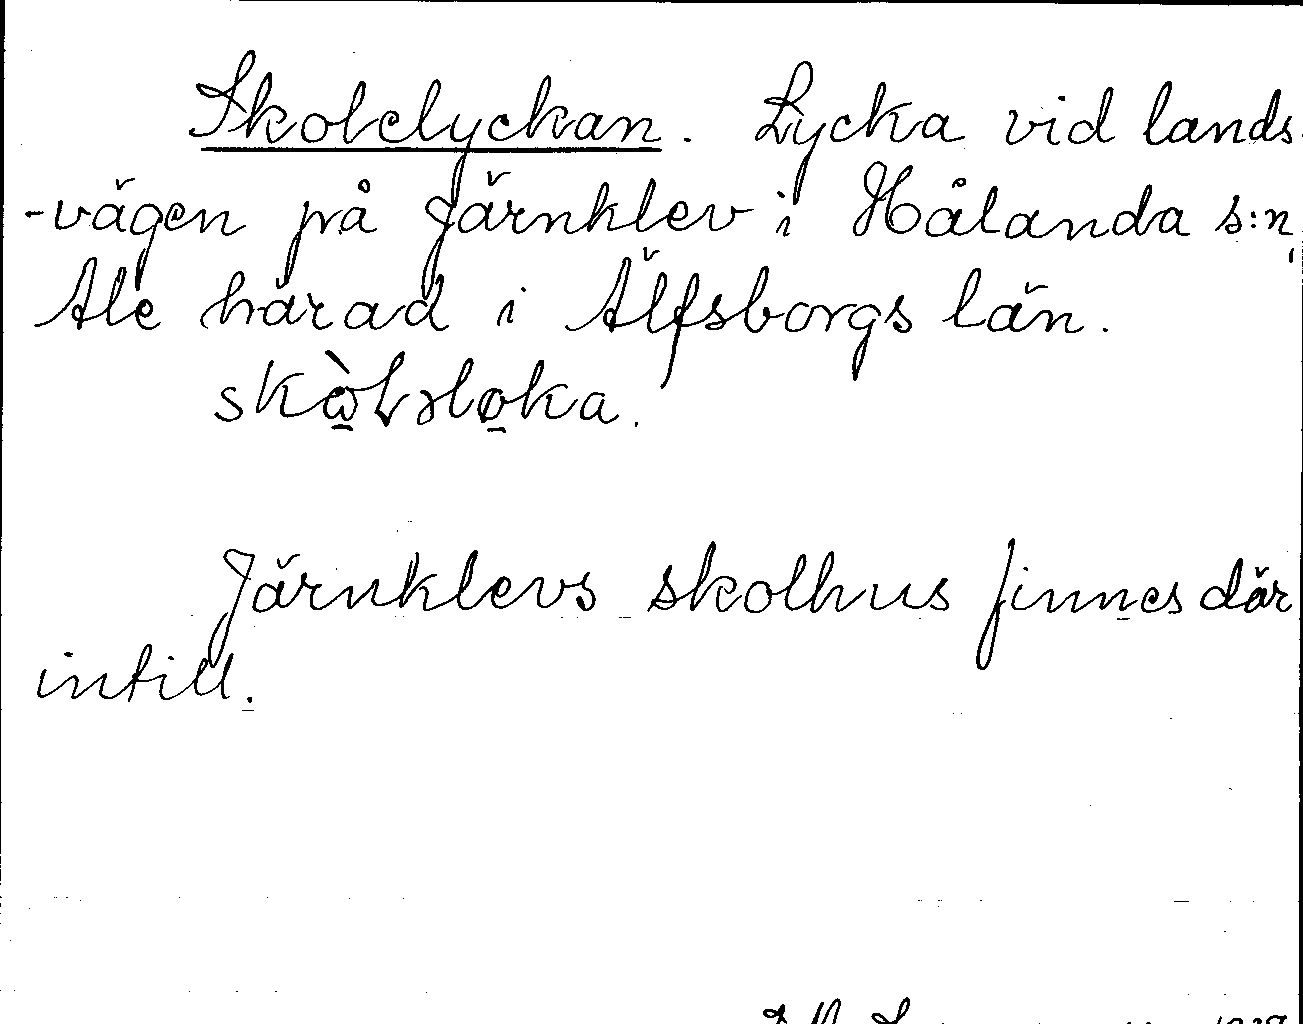 Skolelyckan. Lycka vid lands
-vägen på Järnklev i Hålanda s:n,
Ale härad i Älfsborgs län.
Järnklevs skolhus finnes där
intill.